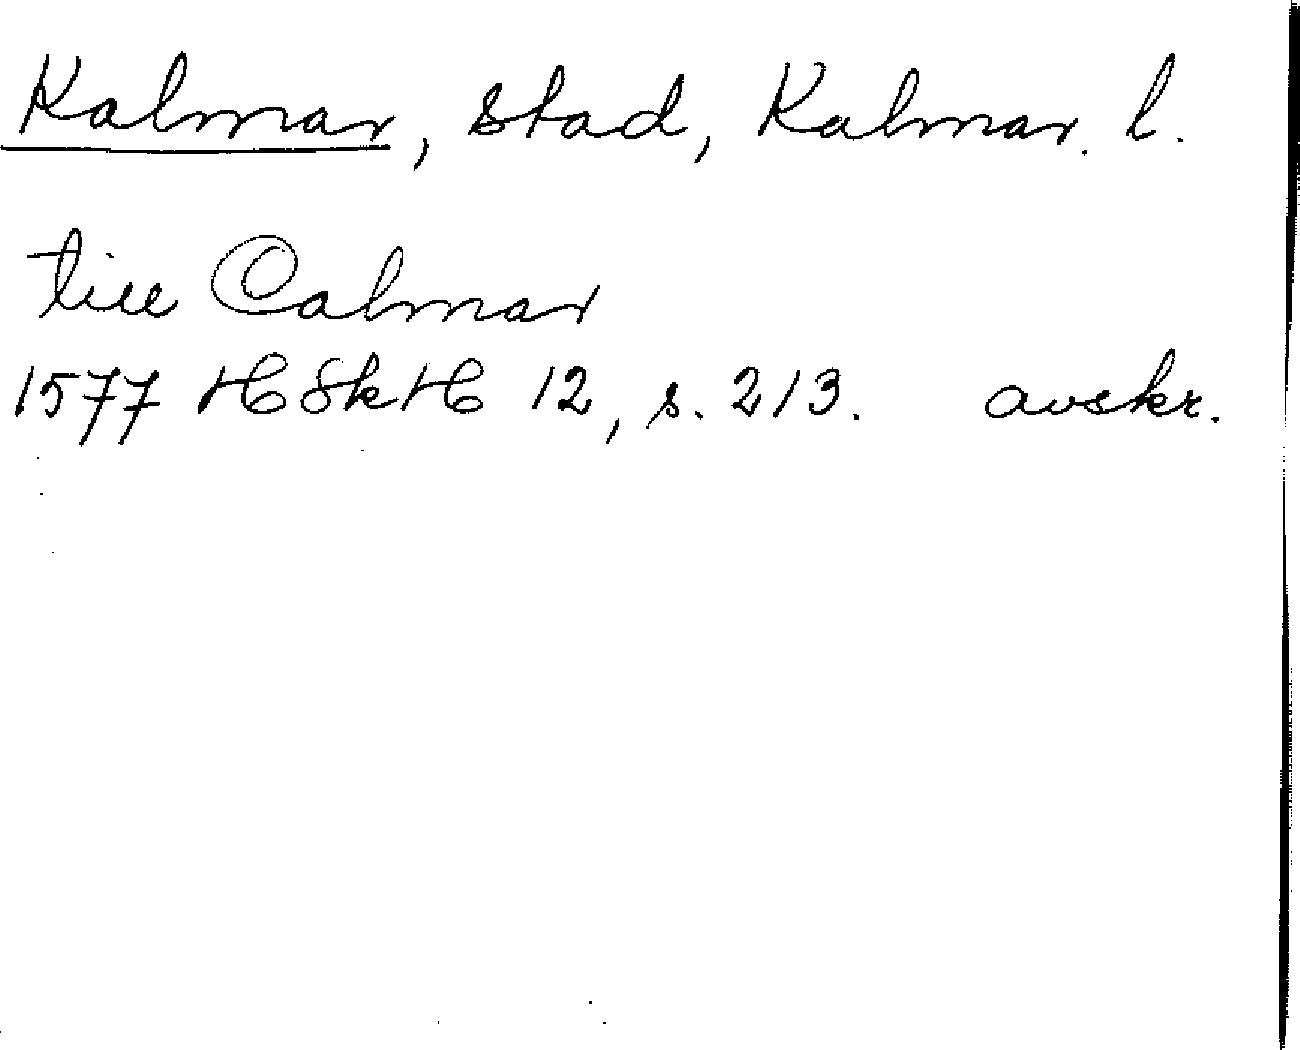 Kalmar, stad, Kalmar. l.
till Calmar
1577 HSkH 12, s. 213. avskr.